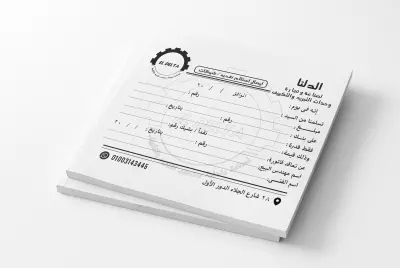 الدلتا
لصناعة وتجارة
وحدات التبريد والتكييف
EL DELTA
إيصال استلام نقدية / شيكات
إنه في يوم:
الموافق / / ٢٠
تسلمنا من السيد:
رقم:
مبلغ:
على بنك:
بتاريخ:
فقط قدره:
وذلك قيمة:
نقداً / بشيك رقم:
بتاريخ: / / ٢٠
عن تعاقد فاتورة:
رقم:
اسم مهندس البيع:
اسم الفني:
٢٨ شارع الجلاء الدور الأول
01003143445